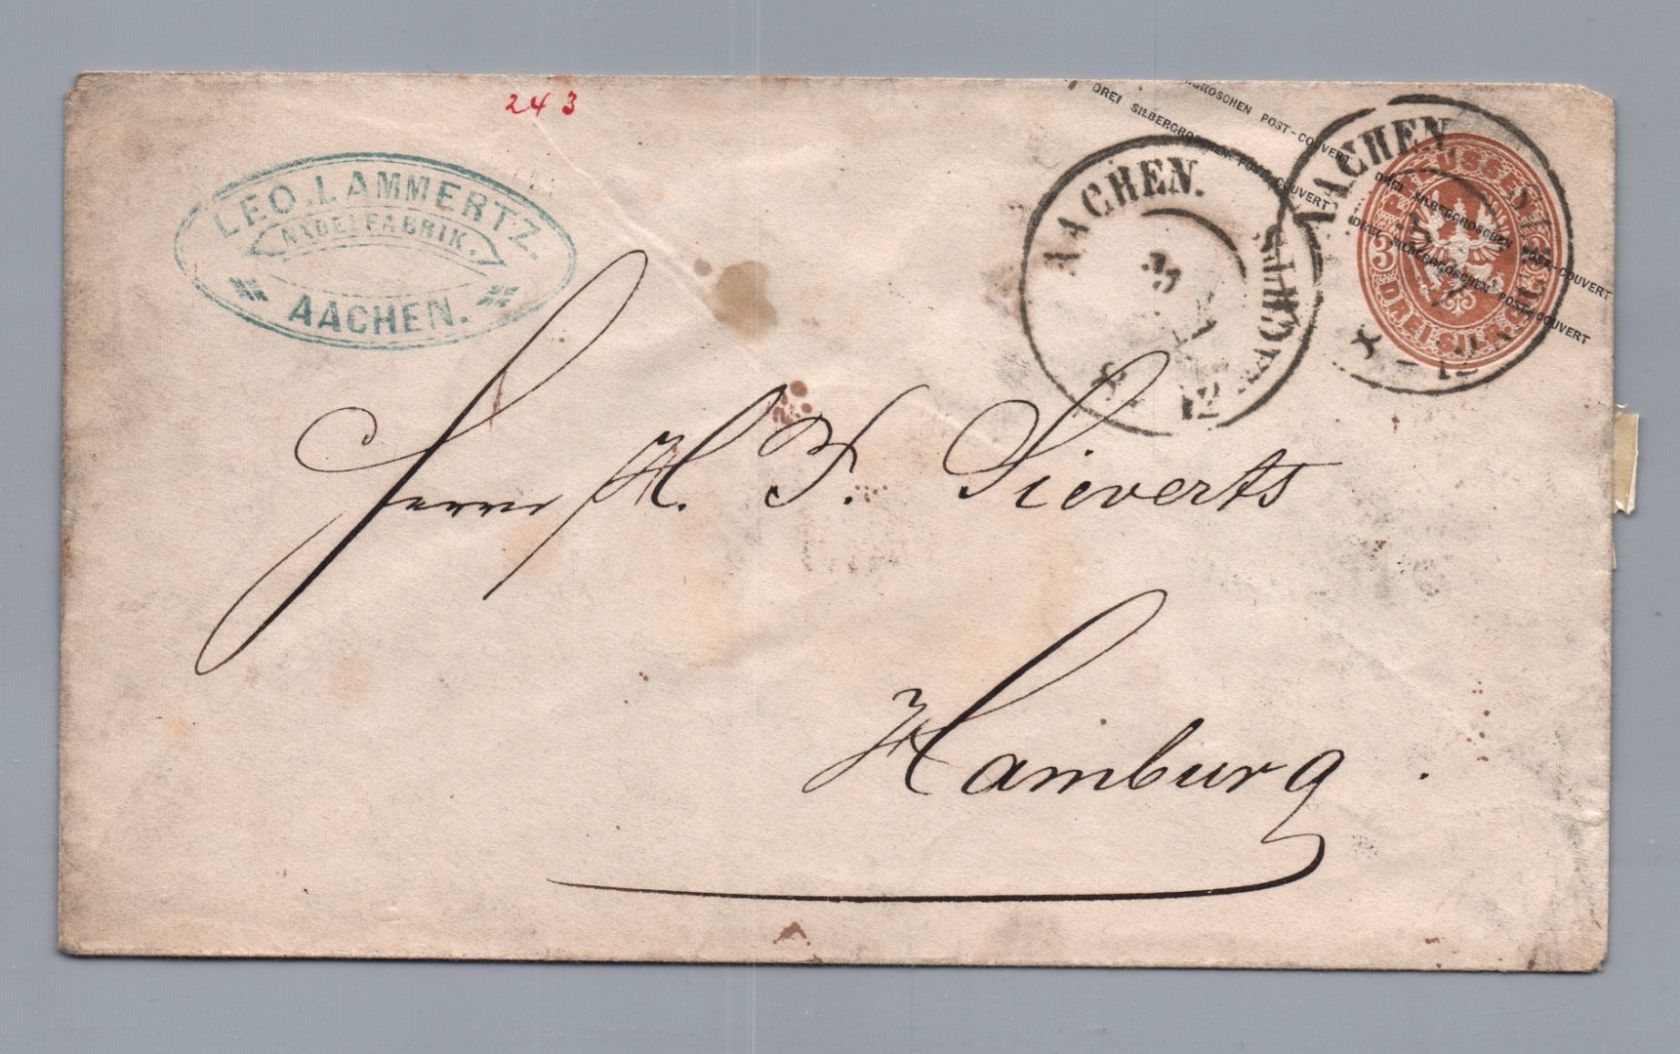 24 3
LEO. LAMMERTZ.
NADELFABRIK.
AACHEN.
GROSCHEN POST-COUVERT
DREI SILBERGROSCHEN POST-COUVERT
DREI SILBERGROSCHEN POST-COUVERT
DREI SILBERGROSCHEN POST-COUVERT
AACHEN.
AACHEN.
3
DREI
Herrn H. F. Sieverts
Hamburg.